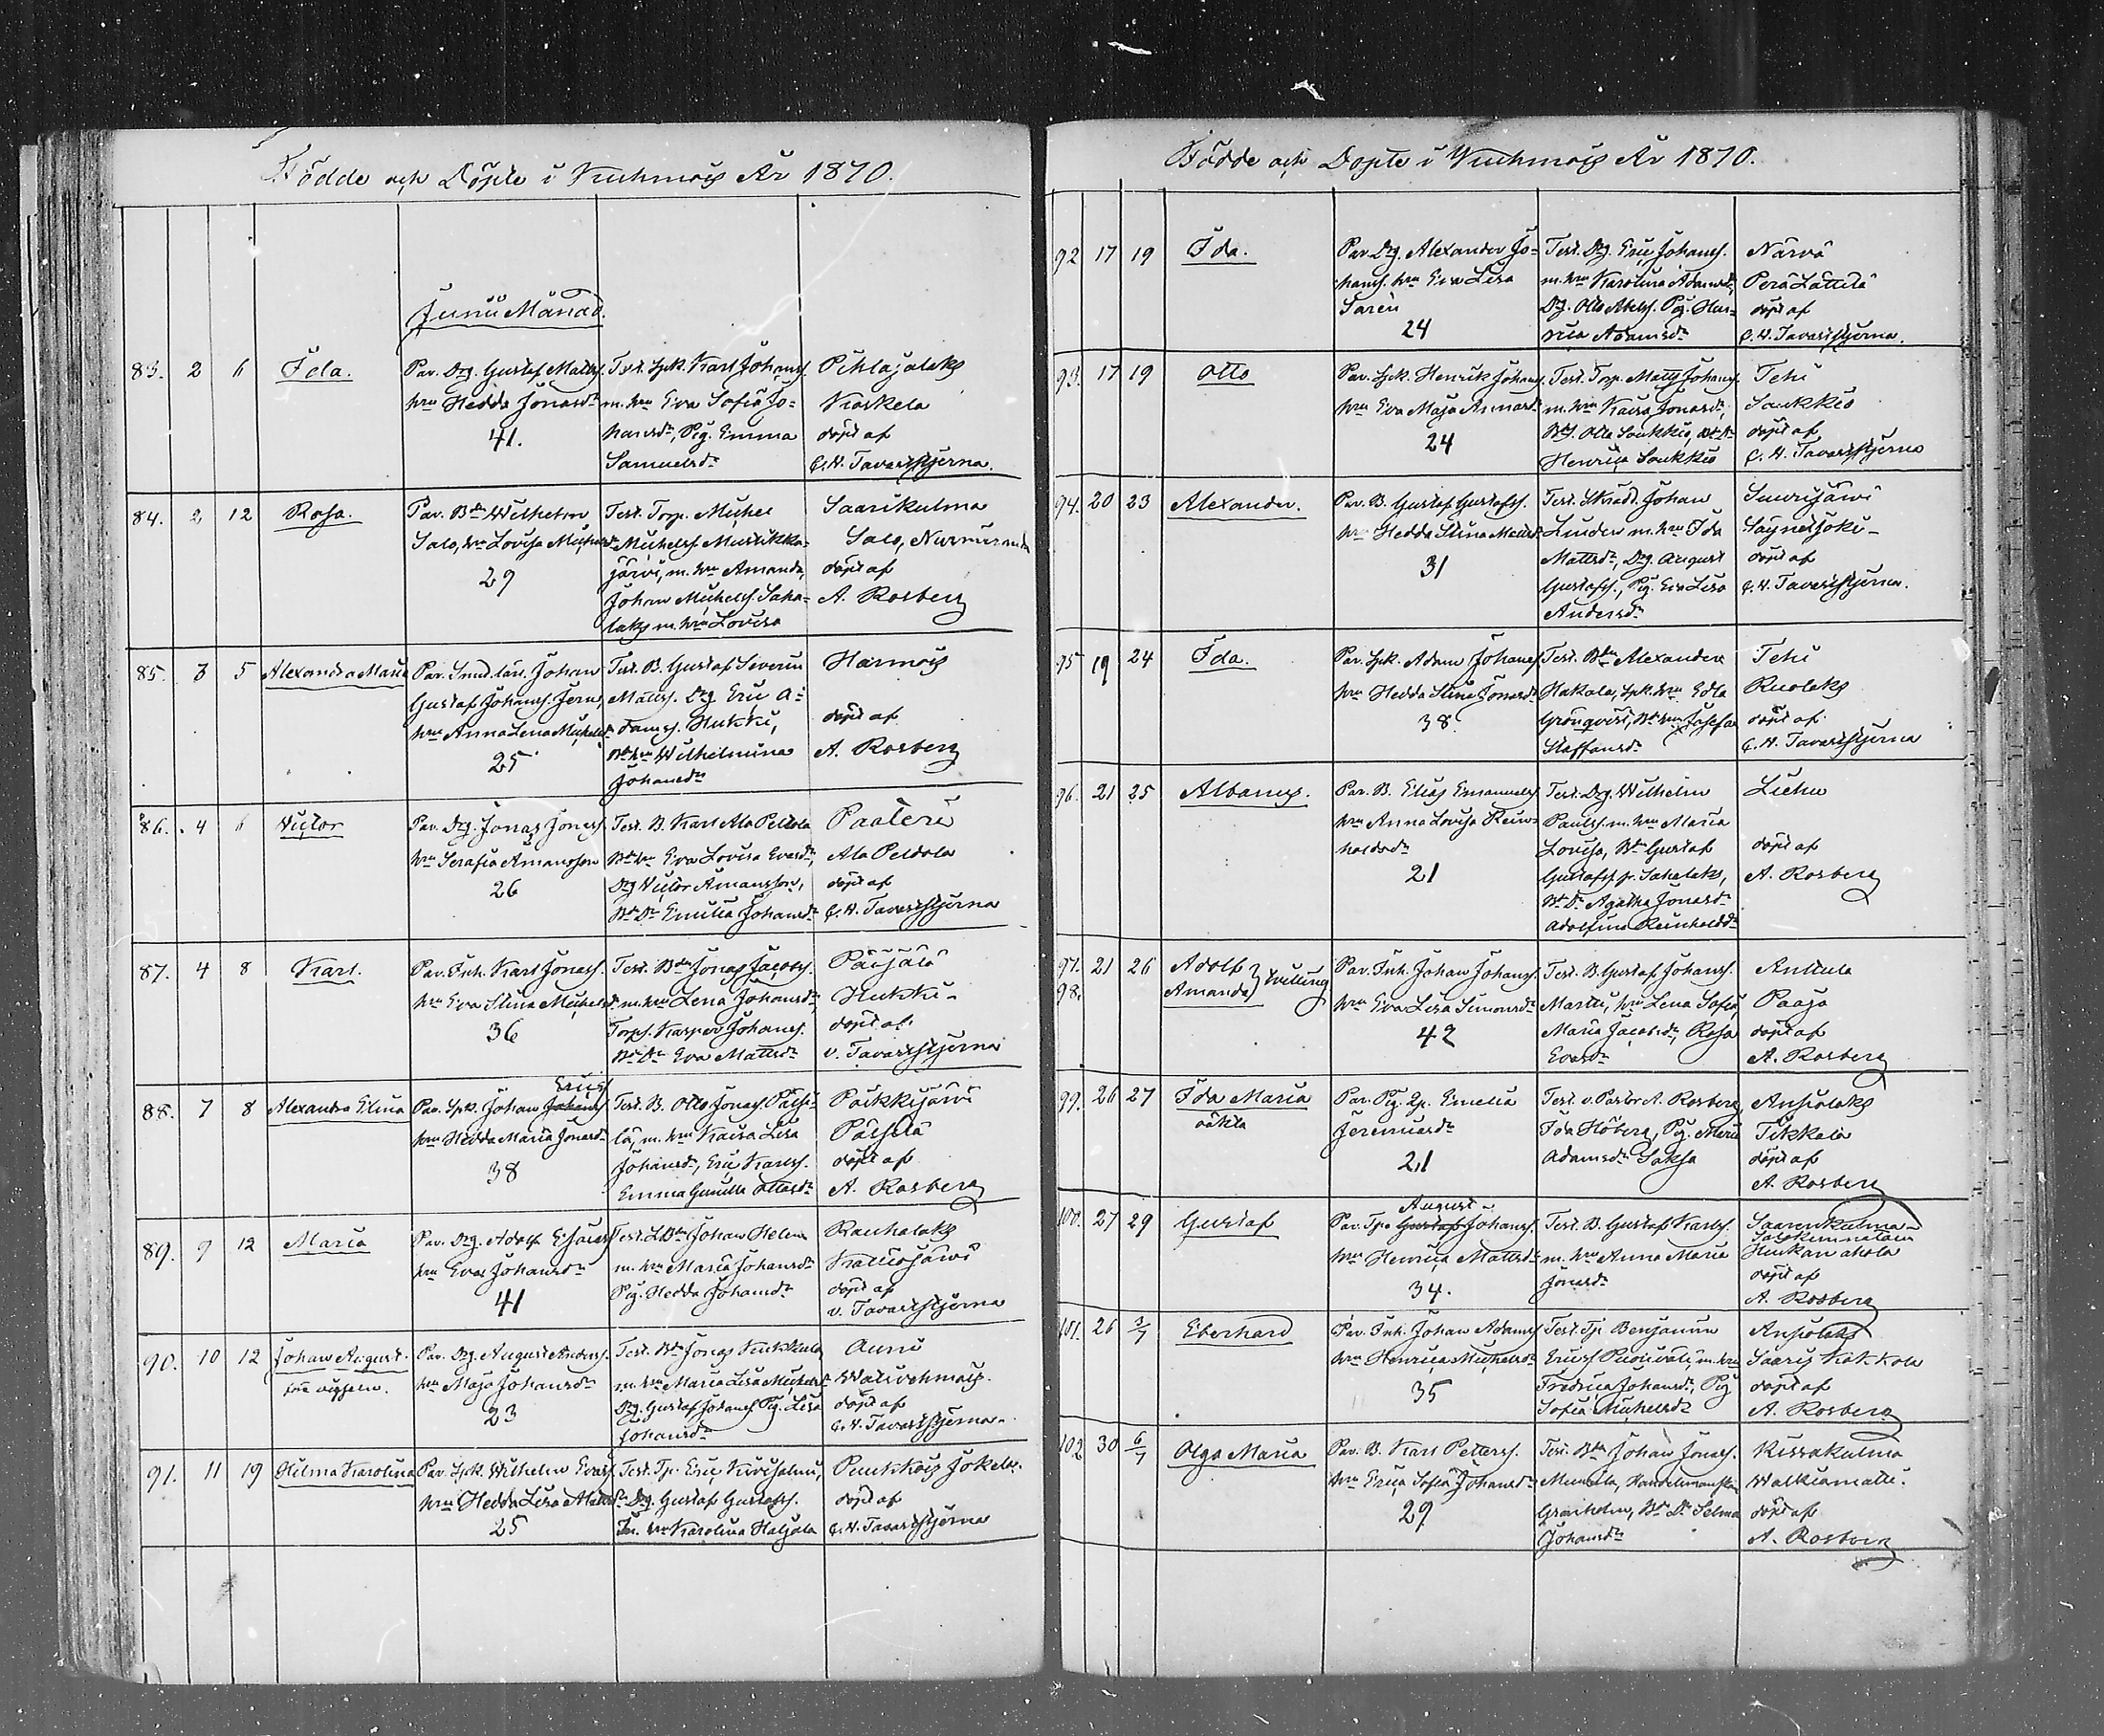 Födde och Döpte i Kuhmois År 1870.
Junii Månad.
83. 2 6 Ida.
Par. Drg. Gustaf Mattss.
hru Hedda Jonasdr
41.
Test. Spk. Karl Johanss.
m. hru Eva Sofia Jo=
hansdr, Pig. Emma
Samuelsdr
Pihlajalaks
Koskela
döpt af
C. H. Tavaststjerna.
84. 2 12 Rosa.
Par. Bdn Wilhelm
Salo, hru Lovisa Michelsdr
29
Test. Torp. Michel
Michelss. Mustikka=
järvi, m. hru Amanda,
Johan Michelss. Saha=
laks m. hru Lovisa
Saarikulma
Salo,
döpt af
A. Rosberg
85. 3 5 Alexandra Maria
Par. Johan
Gustaf Johanss. Jern,
hru Anna Lena Michelsdr
25
Test. B. Gustaf Severin
Mattss. Drg Eric A=
damss. Hukki,
Wilhelmina
Johansdr
Harmois
döpt af
A. Rosberg
86. 4 6 Victor
Par. Drg. Jonas Jonass.
hru Serafia Amansson
26
Test. B. Karl Ala Peldola
Eva Lovisa Evasdr,
Drg Victor Amansson,
Emilia Johansdr
Paatere
Ala Peldola
döpt af
C. H. Tavaststjerna
87. 4 8 Karl.
Par. Inh. Karl Jonass.
hru Eva Stina Michelsdr
36
Test. Bdn Jonas Jacobss.
m. hru Lena Johansdr
Torps. Kasper Johanss.
Eva Mattsdr
Päijälä
Hukki
döpt af
v. Tavaststjerna
88. 7 8 Alexandra Elina
Erics
Par. Spk. Johan Johanss
hru Hedda Maria Jonasdr
38
Test. B. Otto Jonass. Pärsi=
lä, m. hru Kaisa Lisa
Johansdr, Eric Karlss.
Emma Gunilla Ottosdr
Poikkijärvi
Pärsilä
döpt af
A. Rosberg
89. 9 12 Maria
Par. Drg. Adolf Esaiass
hru Eva Johansdr
41
Test. Johan Helen
m. hru Maria Johansdr
Pig. Hedda Johansdr
Rauhalaks
Kalliojärvi
döpt af
v. Tavaststjerna
90. 10 12 Johan August.
före vigseln.
Par. Drg. August Anderss.
hru Maja Johansdr
23
Test. Bdn Jonas Kukkula
m. hru Maria Lisa Michelsdr
Drg. Gustaf Johanss. Pig. Lisa
Johansdr
Auni
Walivehmais.
döpt af
C. H. Tavaststjerna
91. 11 19 Hilma Karolina
Par. Spk. Wilhelm Evass.
hru Hedda Lisa
25
Test. Tp. Eric Kivisalmi,
Drg. Gustaf Gustafss.
hru Karolina Haljala
Puukkois Jokela.
döpt af
C. H. Tavaststjerna
Födde och Döpte i Kuhmois År 1870.
92 17 19 Ida.
Par. Drg. Alexander Jo=
hanss. hru Eva Lisa
Saren
24
Test. Drg. Eric Johanss.
m. hru Karolina Adamsdr,
Drg. Otto Abelss. Pig. Hen=
rica Adamsdr
Närvä
Perälättilä
döpt af
C. H. Tavaststjerna.
93. 17 19 Otto
Par. Spk. Henrik Johanss.
hru Eva Maja
24
Test. Torp. Matts Johanss.
m. hru Kaisa Jonasdr,
Otto Soukkio,
Henrica Soukkio
Tehi
Soukkio
döpt af
C. H. Tavaststjerna
94. 20 23 Alexander.
Par. B. Gustaf Gustafss.
hru Hedda Stina Mattsdr
31
Test. Skradd. Johan
Linden m. hru Ida
Mattsdr, Drg. August
Gustafss., Pig. Eva Lisa
Andersdr
Suurijärvi
Säynetjoki
döpt af
C. H. Tavaststjerna.
95 19 24 Ida.
Par. Spk. Adam Johanss
hru Hedda Stina Jonasdr
38.
Test. Bdn Alexander
Hakala, Spk. hru Edla
Grönqvist, Josefa
Staffansdr
Tehi
Ruolaks
döpt af
C. H. Tavaststjerna
96. 21 25 Albanus.
Par. B. Elias Emanuelss
hru Anna Lovisa Rein=
holdsdr
21
Test. Drg. Wilhelm
Paulss. m. hru Maria
Lovisa, Bdn Gustaf
Gustafss fr. Sahalaks,
Agatha Jonasdr
Adolfina Reinholdsdr
Liehu
döpt af
A. Rosberg
97. 98. 21 26 Adolf
Amanda } tvilling
Par. Inh. Johan Johanss.
hru Eva Lisa Simonsdr
42
Test. B. Gustaf Johanss.
Martti, hru Lena Sofia,
Maria Jacobsdr, Rosa
Evasdr
Anttula
Paaja
döpt af
A. Rosberg
99. 26 27 Ida Maria
oäkta
Par. Pig. Ep. Emelia
Jeremiasdr
21
Test. v. Pastor A. Rosberg
Ida Höberg, Pig. Maria
Adamsdr Saksa
Anjolaks
Tikkala
döpt af
A. Rosberg
100. 27 29 Gustaf
August
Par. Tp. Gustaf Johanss.
hru Henrica Mattsdr
34.
Test. B. Gustaf Karlss.
m. hru Anna Maria
Jonsdr
Saarenkulma
Hiukan ahola
döpt af
A. Rosberg
101. 26 3/7 Eberhard
Par. Inh. Johan Adamss
hru Henrica Michelsdr
35
Test. Tp Benjamin
Ericss m. hru
Fredrica Johansdr, Pig
Sofia Michelsdr
Anjolaks
Saaris Kokkola
döpt af
A. Rosberg
102 30 6/7 Olga Maria
Par. B. Karl Petterss.
hru Erica Sofia Johansdr
29
Test. Bdn Johan Jonass.
Munilla,
Granholm, Selma
Johansdr
Kissakulma
Walkiamatti.
döpt af
A. Rosberg